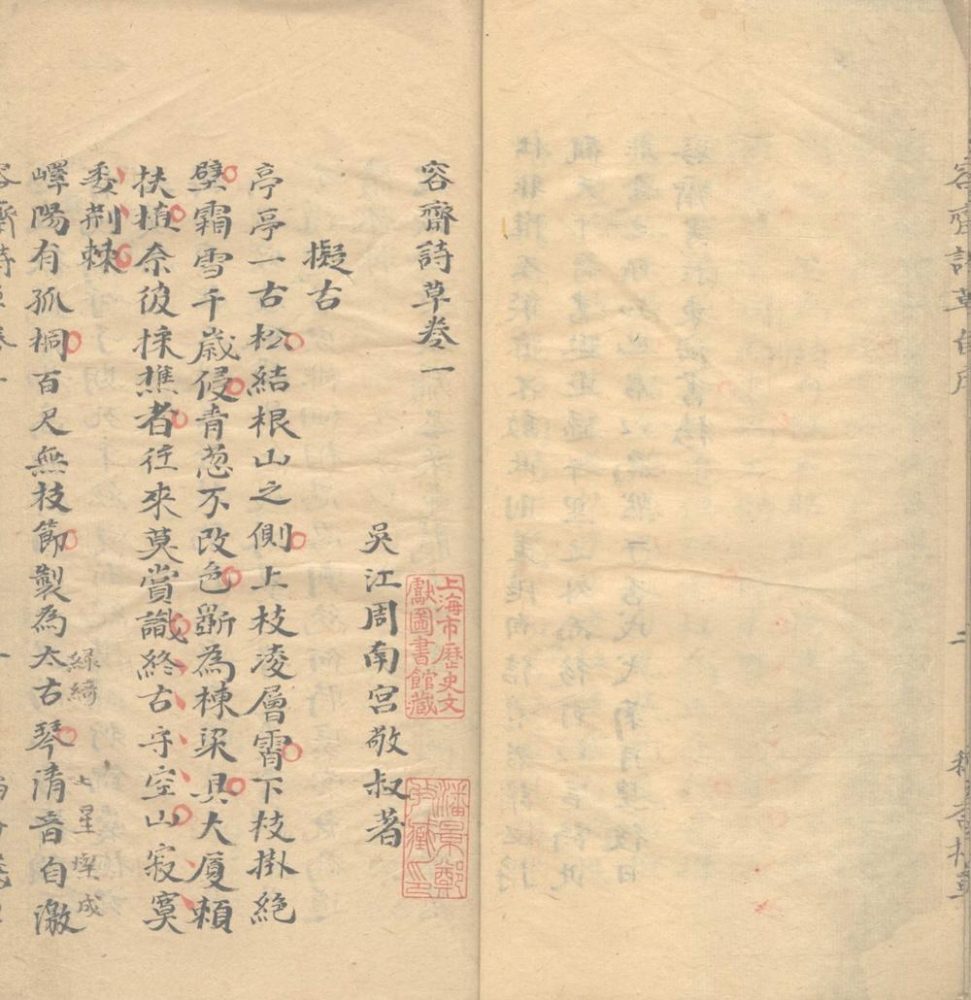 容齋詩草自序
二
容齋詩草卷一
吳江周南宮敬叔著
上海市歷史文
獻圖書館藏
潘景鄭
擬古
亭亭一古松結根山之側上枝凌層霄下枝掛絶
壁霜雪千歲侵青葱不改色斲為棟梁具大厦頼
扶植奈彼採樵者徃來莫賞識終古守空山寂寞
委荊棘
綠綺
七星
成
嶧陽有孤桐百尺無枝節製為太古琴清音自激